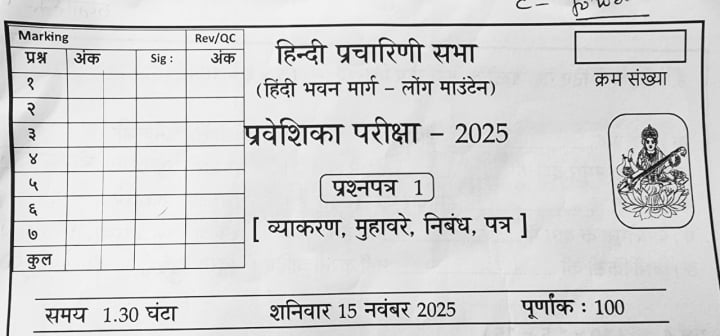 Marking
Rev/QC
प्रश्न अंक Sig : अंक
१
२
३
४
५
६
७
कुल
हिन्दी प्रचारिणी सभा
(हिंदी भवन मार्ग – लोंग माउंटेन)
प्रवेशिका परीक्षा – 2025
प्रश्नपत्र 1
[ व्याकरण, मुहावरे, निबंध, पत्र ]
क्रम संख्या
समय 1.30 घंटा शनिवार 15 नवंबर 2025 पूर्णांक : 100